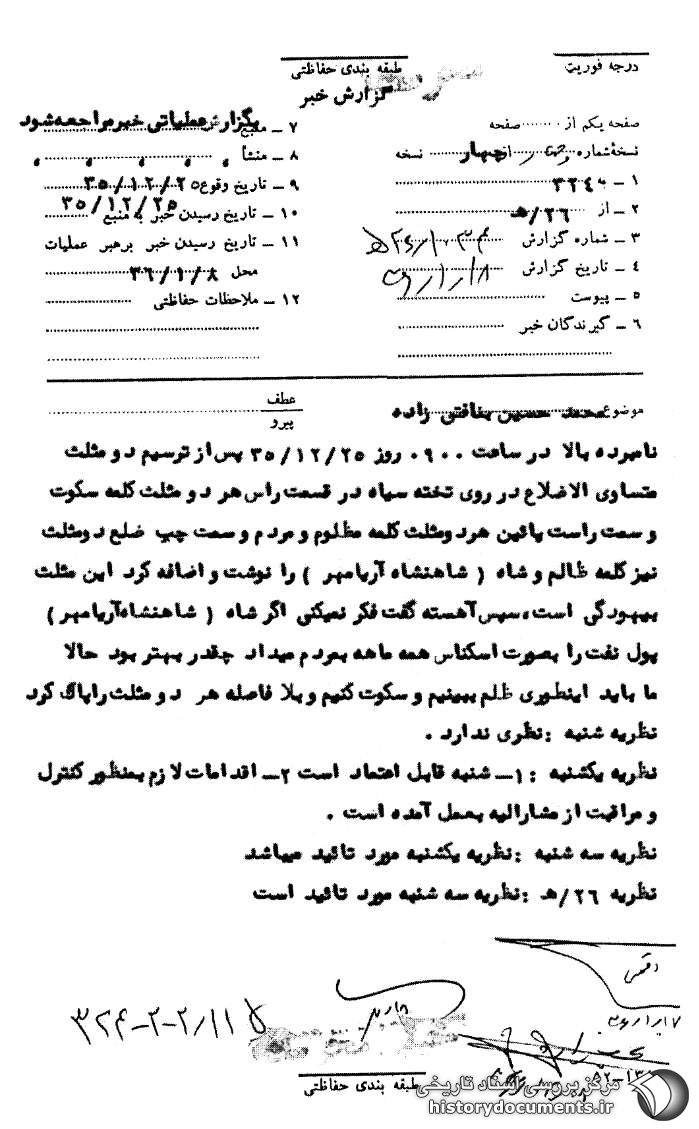 درجه فوریت
طبقه بندی حفاظتی
گزارش خبر
صفحه یکم از ....... صفحه
نسخهٔ شماره ....... از چهار نسخه
۱ ــ به ۳۲۴
۲ ــ از ۲۶/هـ
۳ ــ شماره گزارش
۴ ــ تاریخ گزارش
۵ ــ پیوست
۶ ــ گیرندگان خبر
۷ ــ منبع بگزارش عملیاتی خبر مراجعه شود
۸ ــ منشأ
۹ ــ تاریخ وقوع ۳۵/۱۲/۲۵
۱۰ ــ تاریخ رسیدن خبر به منبع ۳۵/۱۲/۲۵
۱۱ ــ تاریخ رسیدن خبر برهبر عملیات
محل ۳۶/۱/۸
۱۲ ــ ملاحظات حفاظتی
موضوع محمد حسین بنافتی زاده
عطف
پیرو
نامبرده بالا در ساعت ۰۹۰۰ روز ۳۵/۱۲/۲۵ پس از ترسیم دو مثلث
متساوی الاضلاع در روی تخته سیاه در قسمت راس هر دو مثلث کلمه سکوت
و سمت راست پائین هردومثلث کلمه مظلوم و مردم و سمت چپ ضلع دومثلث
نیز کلمه ظالم و شاه ( شاهنشاه آریامهر ) را نوشت و اضافه کرد این مثلث
بیهودگی است، سپس آهسته گفت فکر نمیکنی اگر شاه ( شاهنشاه آریامهر )
پول نفت را بصورت اسکناس همه ماهه بمردم میداد چقدر بهتر بود حالا
ما باید اینطوری ظلم ببینیم و سکوت کنیم و بلا فاصله هر دو مثلث را پاک کرد
نظریه شنبه : نظری ندارد .
نظریه یکشنبه : ۱ــ شنبه قابل اعتماد است ۲ــ اقدامات لازم بمنظور کنترل
و مراقبت از مشارالیه بعمل آمده است .
نظریه سه شنبه : نظریه یکشنبه مورد تائید میباشد
نظریه ۲۶/هـ : نظریه سه شنبه مورد تائید است
طبقه بندی حفاظتی
مرکز بررسی اسناد تاریخی
historydocuments.ir